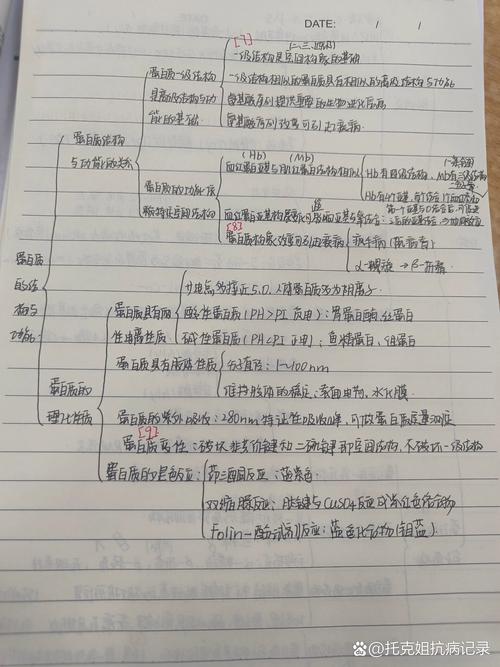 DATE: / /
[7] (二、三、四级)
一级结构是空间构象的基础
蛋白质一级结构 一级结构相似的蛋白质具有相似的高级结构与功能
是高级结构与功 氨基酸序列提供重要的生物进化信息
能的基础 氨基酸序列改变可引起疾病
蛋白质结构
与功能的关系
(Hb) (Mb)
蛋白质的功能依 血红蛋白亚基与肌红蛋白结构相似 Hb有四级结构,Mb有三级结构
赖特定空间结构 Hb有4个亚基
血红蛋白亚基构象变化可影响亚基与氧结合
[8]
蛋白质构象改变可引起疾病 疯牛病(朊病毒)
α-螺旋→β-折叠
蛋白质
的结
构与
功能
蛋白质的
理化性质
蛋白质具有两 等电点多接近5.0,人体蛋白质多为阴离子
性电离性质 酸性蛋白质(PH>PI 负电):胃蛋白酶,丝蛋白
碱性蛋白质(PH<PI 正电):鱼精蛋白,组蛋白
蛋白质具有胶体性质 分子直径:1~100nm
维持胶体的稳定:表面电荷,水化膜
蛋白质的紫外吸收:280nm特征性吸收峰,可做蛋白质定量测定
[9]
蛋白质变性:破坏非共价键和二硫键即空间结构,不破坏一级结构
蛋白质的呈色反应:茚三酮反应:蓝紫色
双缩脲反应:肽键与CuSO4反应成紫红色络合物
Folin-酚试剂反应:蓝色化合物(钼蓝)
@托克姐抗病记录